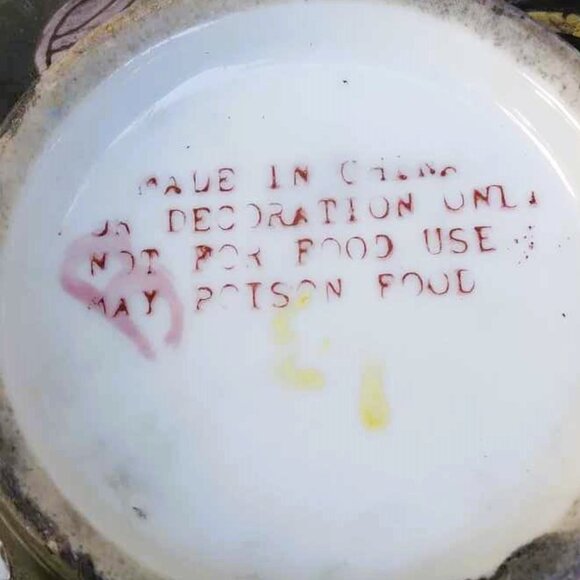 MADE IN CHINA
FOR DECORATION ONLY
NOT FOR FOOD USE
MAY POISON FOOD